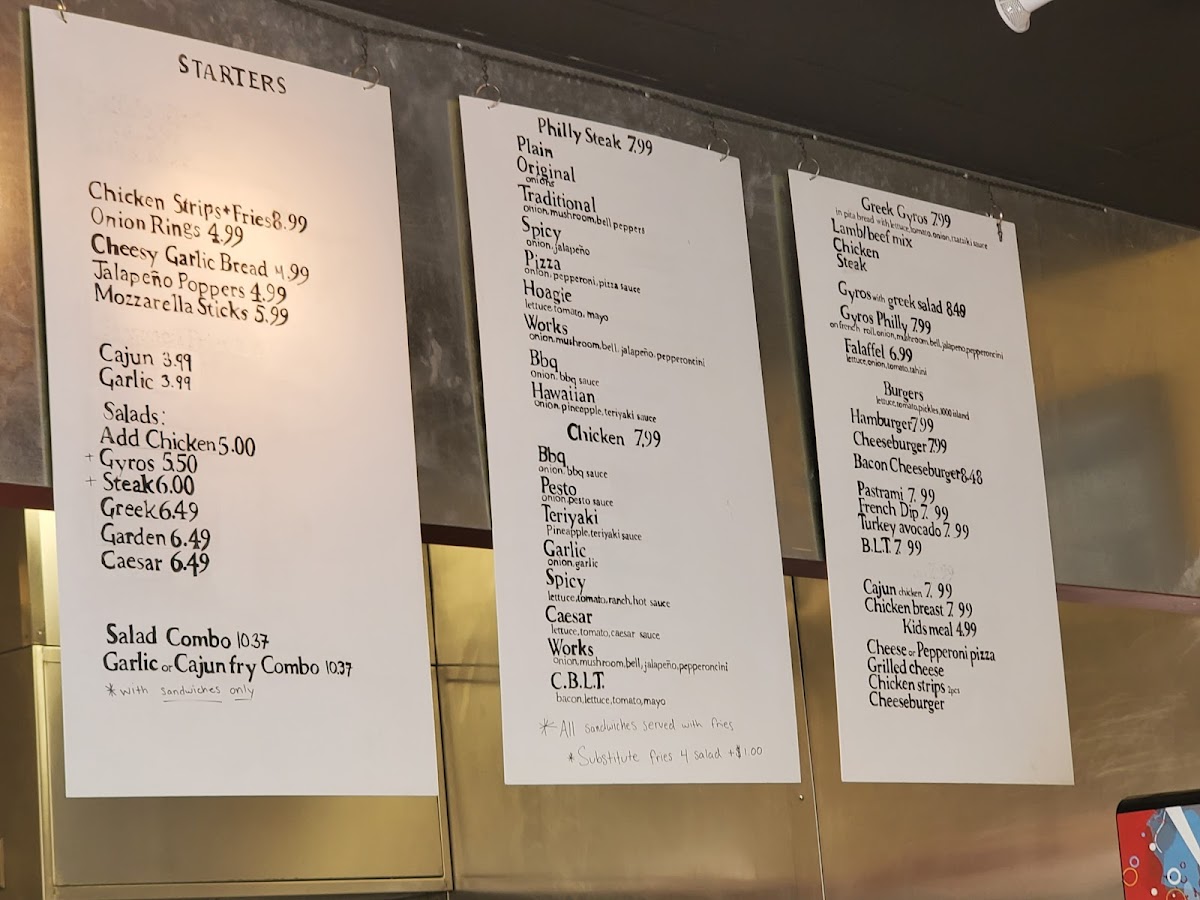 STARTERS
Chicken Strips+Fries8.99
Onion Rings 4.99
Cheesy Garlic Bread 4.99
Jalapeño Poppers 4.99
Mozzarella Sticks 5.99
Cajun 3.99
Garlic 3.99
Salads:
Add Chicken 5.00
+ Gyros 5.50
+ Steak 6.00
Greek 6.49
Garden 6.49
Caesar 6.49
Salad Combo 10.37
Garlic or Cajun fry Combo 10.37
*with sandwiches only
Philly Steak 7.99
Plain
Original
onions
Traditional
onion,mushroom,bell peppers
Spicy
onion,jalapeño
Pizza
onion,pepperoni,pizza sauce
Hoagie
lettuce tomato, mayo
Works
onion,mushroom,bell, jalapeño,pepperoncini
Bbq
onion, bbq sauce
Hawaiian
onion,pineapple,teriyaki sauce
Chicken 7.99
Bbq
onion, bbq sauce
Pesto
onion,pesto sauce
Teriyaki
Pineapple,teriyaki sauce
Garlic
onion,garlic
Spicy
lettuce,tomato,ranch,hot sauce
Caesar
lettuce,tomato,caesar sauce
Works
onion,mushroom,bell,jalapeño,pepperoncini
C.B.L.T.
bacon,lettuce,tomato,mayo
*All sandwiches served with fries
*Substitute fries 4 salad +$1.00
Greek Gyros 7.99
in pita bread with lettuce,tomato,onion,tsatsiki sauce
Lamb/beef mix
Chicken
Steak
Gyros with greek salad 8.49
Gyros Philly 7.99
on french roll.onion,mushroom,bell,jalapeño,pepperoncini
Falaffel 6.99
lettuce,onion,tomato,tahini
Burgers
lettuce,tomato,pickles,1000 island
Hamburger7.99
Cheeseburger 7.99
Bacon Cheeseburger8.48
Pastrami 7.99
French Dip 7.99
Turkey avocado 7.99
B.L.T. 7.99
Cajun chicken 7.99
Chicken breast 7.99
Kids meal 4.99
Cheese or Pepperoni pizza
Grilled cheese
Chicken strips 2pcs
Cheeseburger